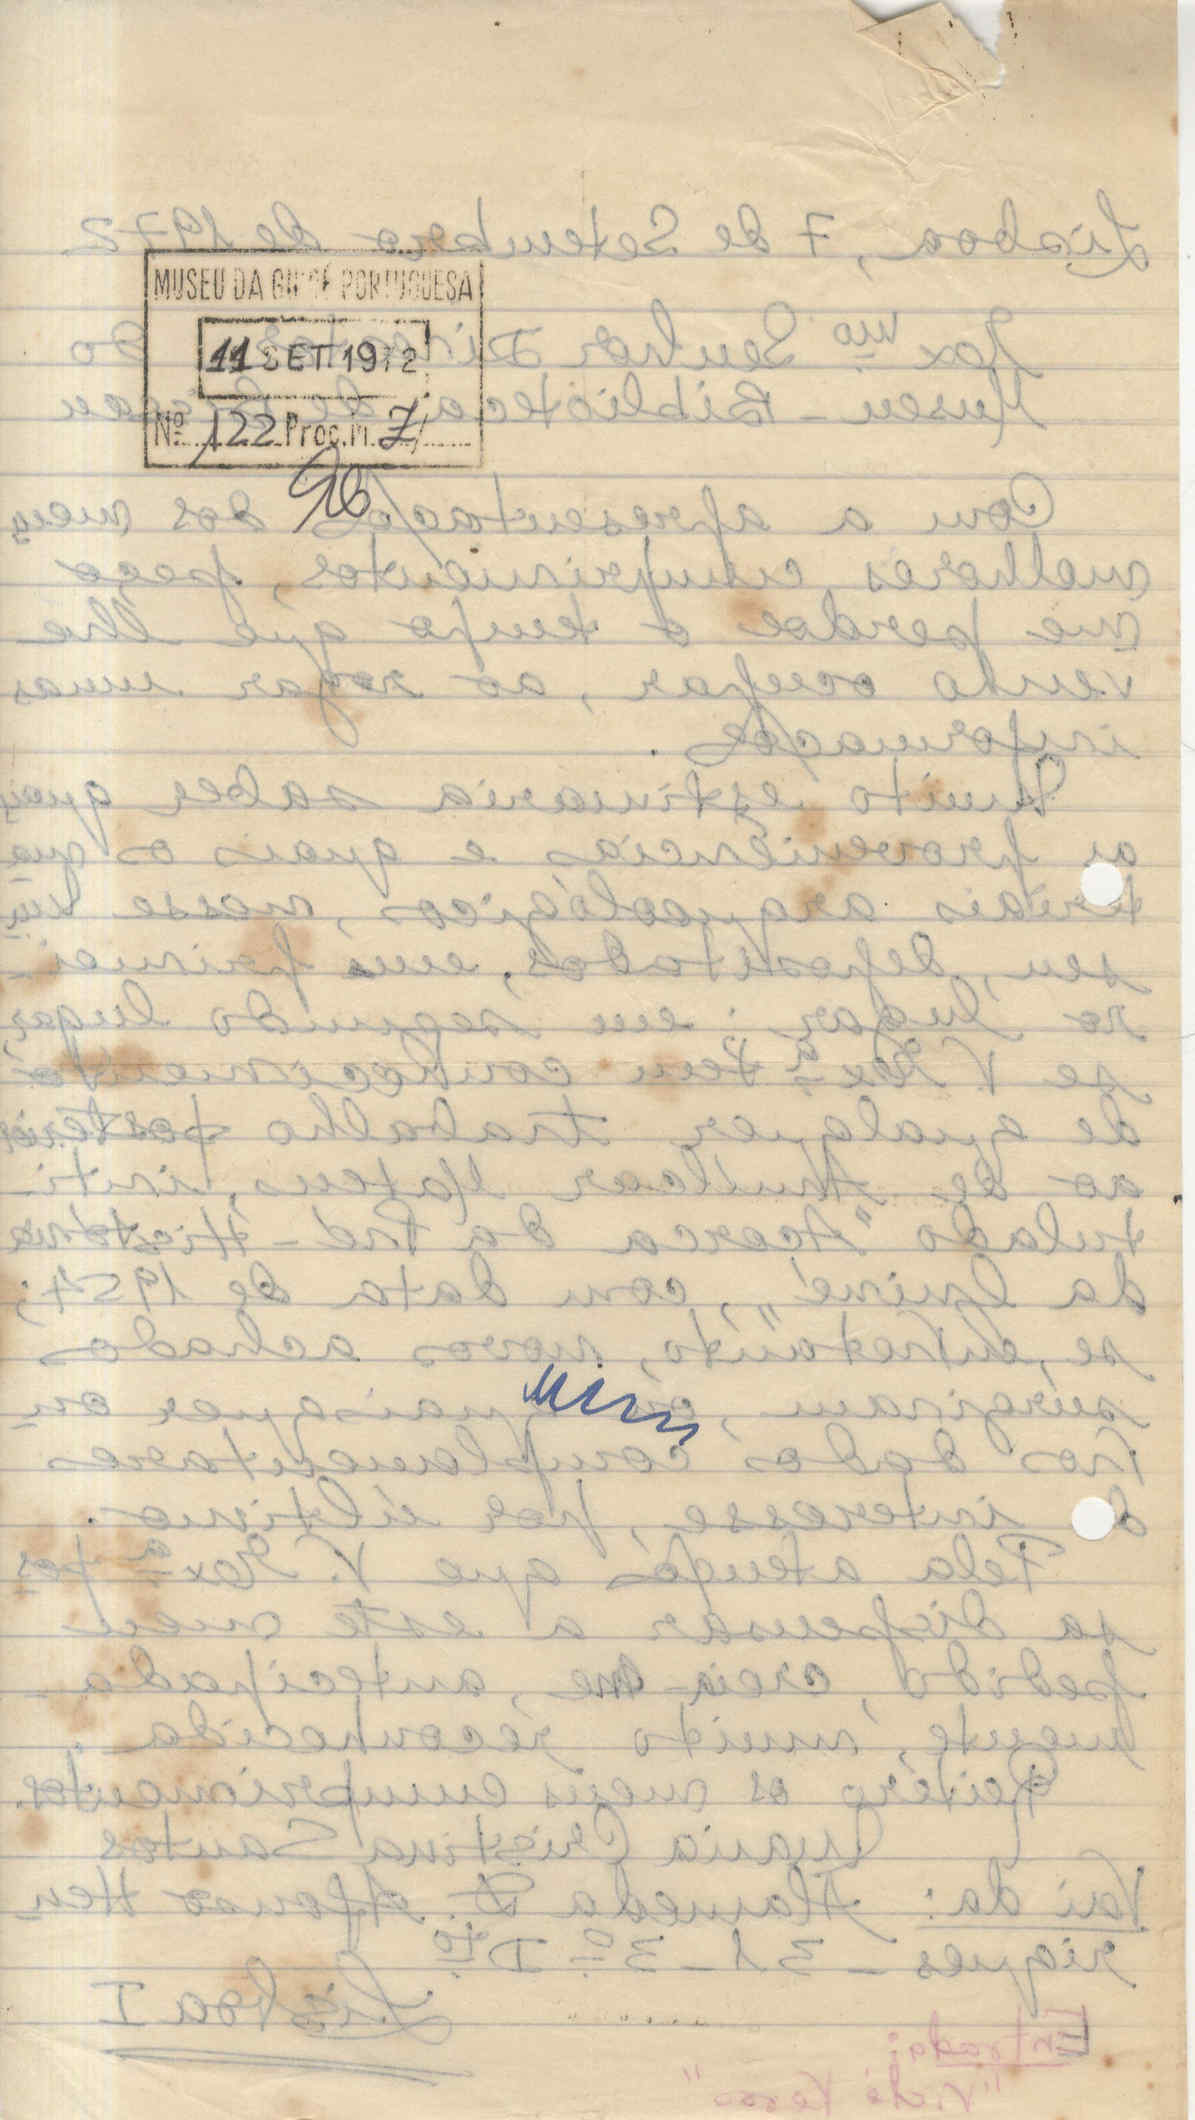 Lisboa, 7 de Setembro de 1972
MUSEU DA GUINÉ PORTUGUESA
11 SET. 1972
Nº 122 Proc. M. 7/
Exmo Senhor Director do
Museu - Biblioteca de Bissau
Com a apresentação dos meus
melhores cumprimentos, peço
me perdoe o tempo que lhe
venho ocupar, ao rogar umas
informações.
Muito estimaria saber quais
as proveniências e quais os ma-
teriais arqueológicos, nesse Mu-
seu, depositados, em primei-
ro lugar; em segundo lugar,
se V. Exª tem conhecimento
de qualquer trabalho posterior
ao de Amílcar Mateus, inti-
tulado "Acerca da Pré-História
da Guiné", com data de 1954;
se, entretanto, novos achados
surgiram, e quaisquer ou-
tros dados complementares
d interesse, por último.
Pela atenção que V. Exª pos-
sa dispensar a este meu
pedido, creia-me, antecipada-
mente, muito reconhecida.
Reitero os meus cumprimentos.
Maria Cristina Santos
Vai da: Alameda D. Afonso Hen-
riques - 31 - 3º Dto
Lisboa I
Entrada:
"Vidé Verso"